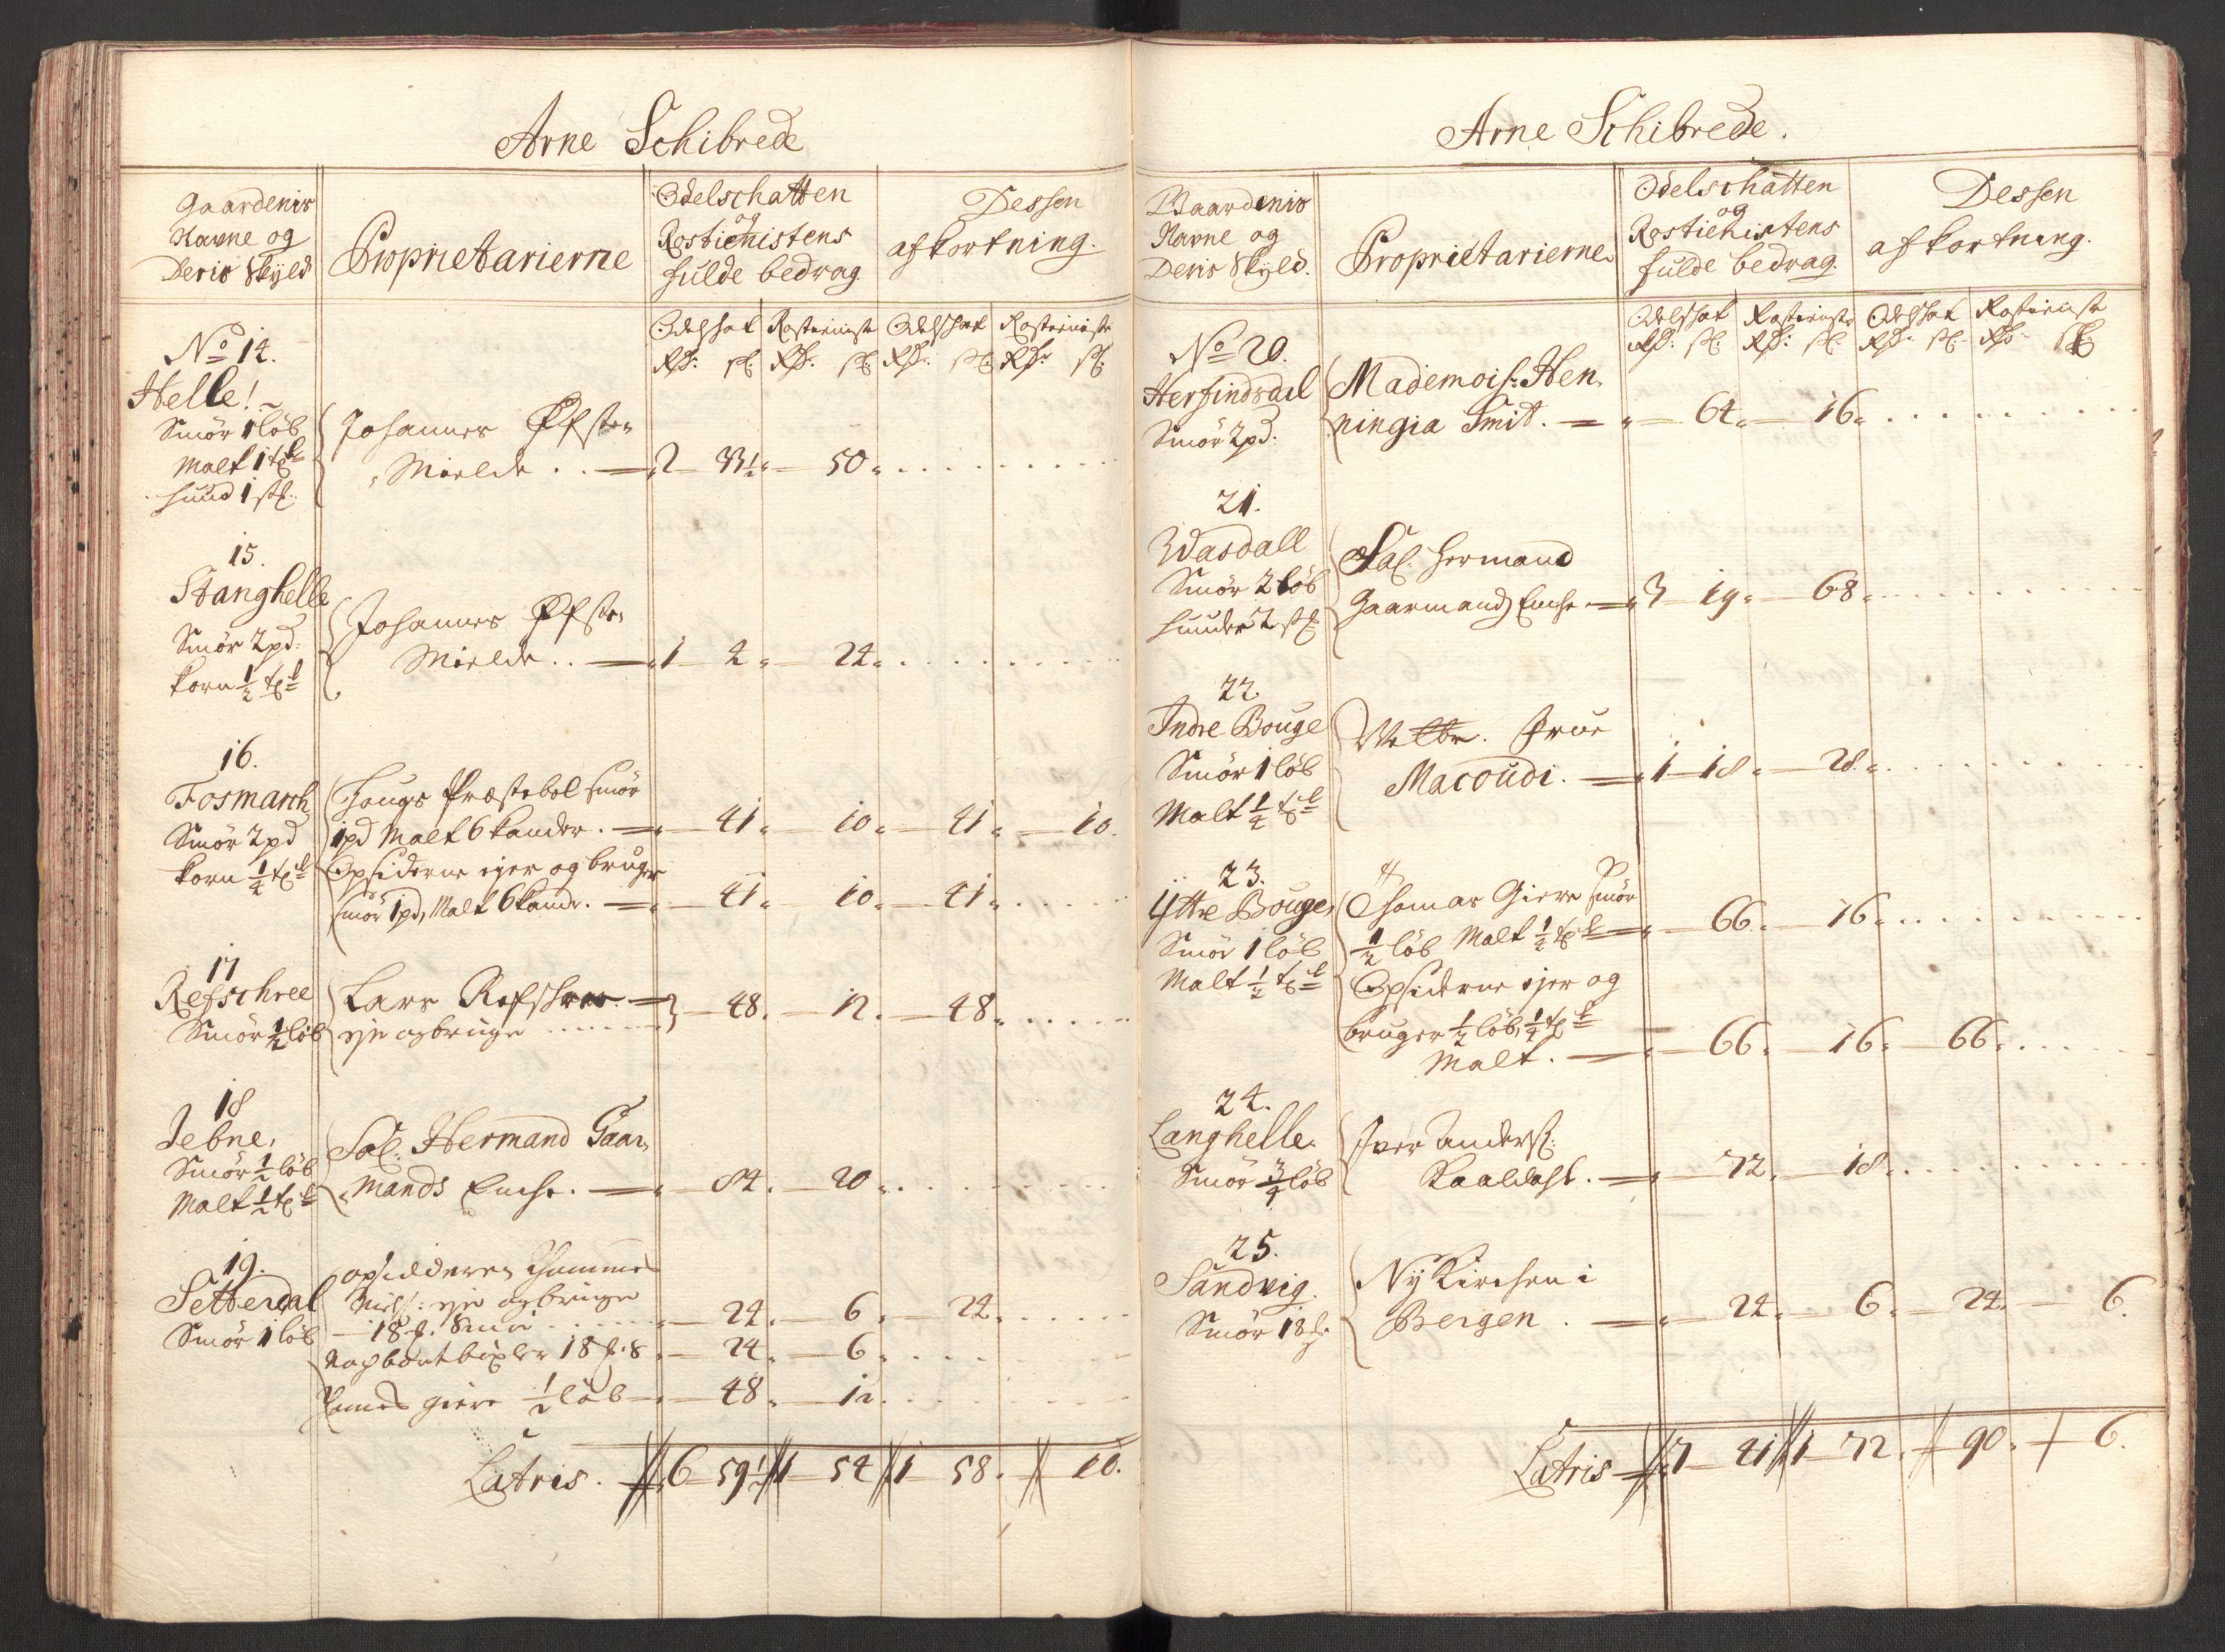 Arne Schibrede
Gaardenis
Navne og
Deris Skyld
Proprietarierne
Odelschatten
og
Rostienistens
fulde bedrag
Dessen
afkortning.
Odelschat Rostieniste Odelschat Rostieniste
Rdr. sk. Rdr. sk. Rdr. sk. Rdr. sk.
No 14.
Helle!
Smör 1 löb
Malt 1 tøl
huud 1 st.
Johannes Øfste
Mielde . . — 2 — 33½ — 50 . . .
15.
Stanghelle
Smör 2 pd:
korn ½ tøl
Johannes Øfste
Mielde . . — 1 — 2 — 24 . . .
16.
Fosmarch
Smör 2 pd
korn ¼ tøl
Hougs Præstebol smör
1 pd Malt 6 kander . — 41 — 10 — 41 — 10.
Opsiderne ejer og bruger
smör 1 pd, Malt 6 kand. — 41 — 10 — 41 . . .
17
Refschree
Smör ½ löb
Lars Refschree —
eje og bruge . . . — 48 — 12 — 48 . . .
18
Jebne,
Smör ½ löb
Malt ½ tøl
Sal. Hermand Gaar,
mands Enche. — 84 — 20 . . .
19.
Setterdal
Smör 1 löb
opsidderen
Niels: eje og bruge
18 . Smör . . . — 24 — 6 — 24 . . .
18 . 8 — 24 — 6 . . .
giere ½ löb — 48 — 12 . . .
Latris. — 6 — 59½ 1 — 54 1 — 58. — 10.
Arne Schibrede.
Gaardenis
Navne og
Deris Skyld.
Proprietarierne
Odelschatten
og
Rostienistens
fulde bedrag.
Dessen
afkortning.
Odelschat Rostieniste Odelschat Rostieniste
Rdr. sk. Rdr. sk. Rdr. sk. Rdr. sk.
No 20.
Herfindsdal
Smör 2 pd:
Mademois: Hen,
ningia Smit. — 64 — 16 . . .
21.
Wasdall
Smör 2 löb
huuder 2 st
Sal. Hermand
Gaarmands Enche — 3 — 19 — 68 . . .
22.
Indre Bouge
Smör 1 löb
Malt ¼ tøl
Welbr. Frue
Macoudi. — 1 — 18 — 28 . . .
23.
Yttre Bouge,
Smör 1 löb
Malt ½ tøl
Thomas Giere smör
½ löb Malt ½ tøl — 66 — 16 . . .
Opsiderne ejer og
bruger ½ löb, ¼ tøl
Malt. — 66 — 16 — 66 . . .
24.
Langhelle.
Smör ¾ löb
Iver Anders:
Kaaldahl. — 72 — 18 . . .
25.
Sandvig.
Smör 18
Ny Kirchen i
Bergen . — 24 — 6 — 24 — 6.
Latris — 7 — 41 1 — 72. — 90. — 6.